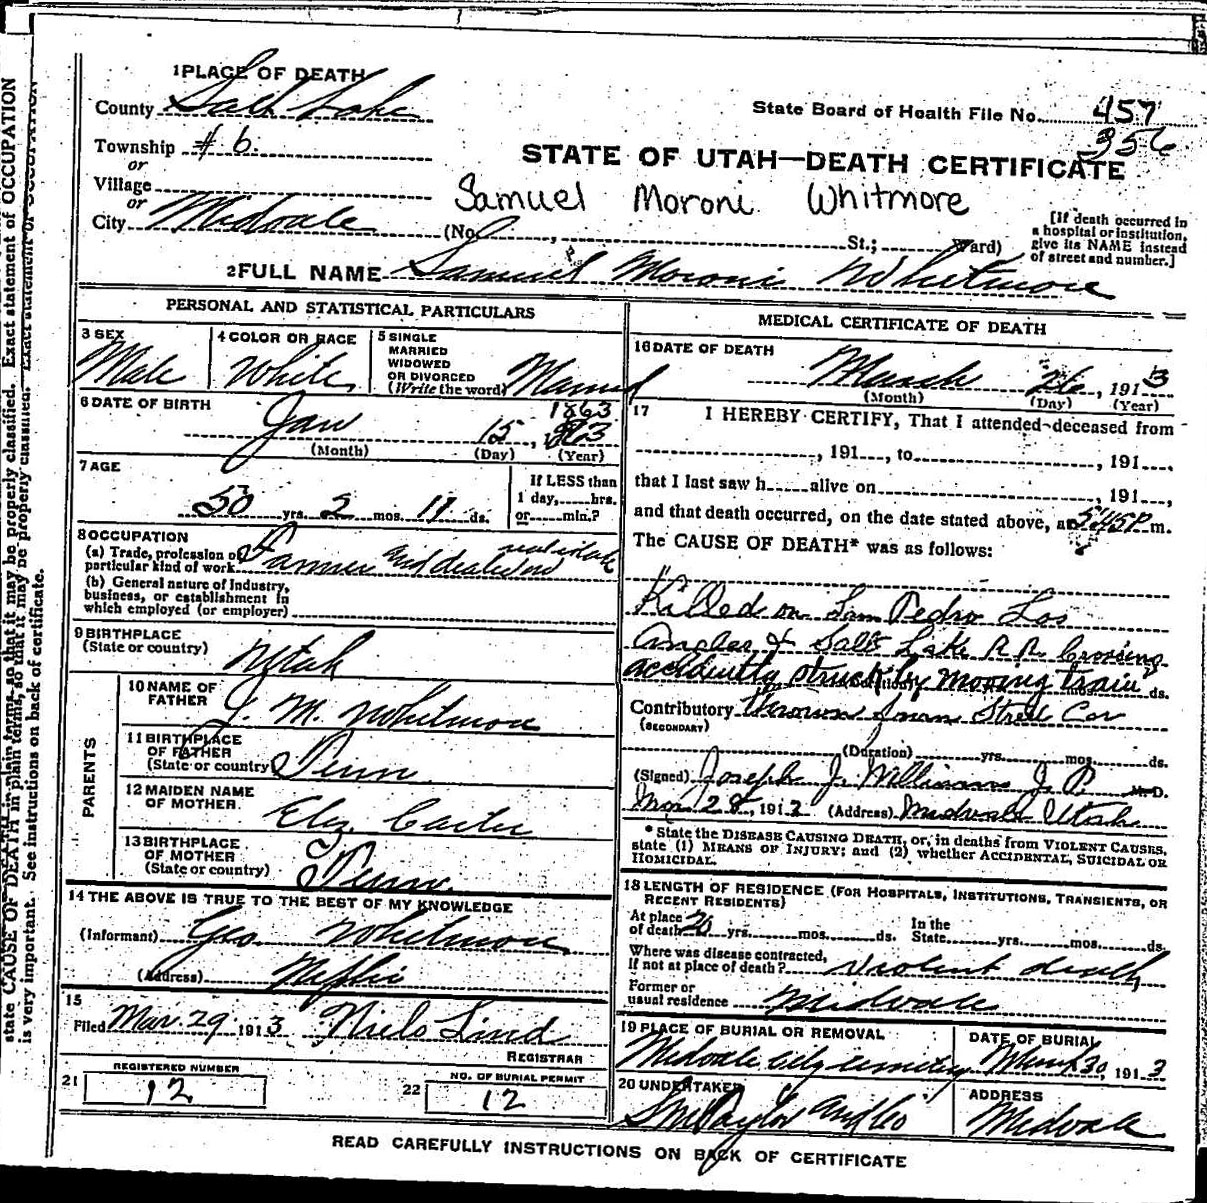 state CAUSE OF DEATH in plain terms, so that it may be properly classified. Exact statement of OCCUPATION
is very important. See instructions on back of certificate.
1 PLACE OF DEATH
County Salt Lake
State Board of Health File No. 457
356
Township # 6.
or
STATE OF UTAH—DEATH CERTIFICATE
Village
or
Samuel Moroni Whitmore
City Midvale (No. , St.; Ward)
[If death occurred in
a hospital or institution,
give its NAME instead
of street and number.]
2 FULL NAME Samuel Moroni Whitmore
PERSONAL AND STATISTICAL PARTICULARS
3 SEX
Male
4 COLOR OR RACE
White
5 SINGLE
MARRIED
WIDOWED
OR DIVORCED
(Write the word) Married
6 DATE OF BIRTH
1863
Jan 15,
(Month) (Day) (Year)
7 AGE
50 yrs. 2 mos. 11 ds.
If LESS than
1 day, hrs.
or min.?
8 OCCUPATION
(a) Trade, profession or
particular kind of work Farmer and dealer in real estate
(b) General nature of Industry,
business, or establishment in
which employed (or employer)
9 BIRTHPLACE
(State or country) Utah
PARENTS
10 NAME OF
FATHER
M. Whitmore
11 BIRTHPLACE
OF FATHER
(State or country) Penn
12 MAIDEN NAME
OF MOTHER
Eliz. Carter
13 BIRTHPLACE
OF MOTHER
(State or country) Penn.
14 THE ABOVE IS TRUE TO THE BEST OF MY KNOWLEDGE
(Informant) Geo. Whitmore
(Address) Nephi
15
Filed Mar. 29 1913 Niels Lind
REGISTRAR
21 REGISTERED NUMBER
12
22 NO. OF BURIAL PERMIT
12
MEDICAL CERTIFICATE OF DEATH
16 DATE OF DEATH
March 26, 1913
(Month) (Day) (Year)
17 I HEREBY CERTIFY, That I attended deceased from
, 191 , to , 191 ,
that I last saw h alive on , 191 ,
and that death occurred, on the date stated above, at 5:45 P m.
The CAUSE OF DEATH* was as follows:
Killed on San Pedro Los
Angles & Salt Lake R R Crossing
accidently struck by moving train ds.
Contributory thrown from Street Car
(SECONDARY)
(Duration) yrs. mos. ds.
(Signed) Joseph J. Williams J. P. M.D.
Mar 28, 1913 (Address) Midvale Utah
* State the DISEASE CAUSING DEATH, or, in deaths from VIOLENT CAUSES,
state (1) MEANS OF INJURY; and (2) whether ACCIDENTAL, SUICIDAL OR
HOMICIDAL.
18 LENGTH OF RESIDENCE (FOR HOSPITALS, INSTITUTIONS, TRANSIENTS, OR
RECENT RESIDENTS)
At place
of death 20 yrs. mos. ds. In the
State yrs. mos. ds.
Where was disease contracted,
if not at place of death? violent death
Former or
usual residence Midvale
19 PLACE OF BURIAL OR REMOVAL
Midvale City cemetery
DATE OF BURIAL
March 30, 1913
20 UNDERTAKER
S M Taylor and Co
ADDRESS
Midvale
READ CAREFULLY INSTRUCTIONS ON BACK OF CERTIFICATE